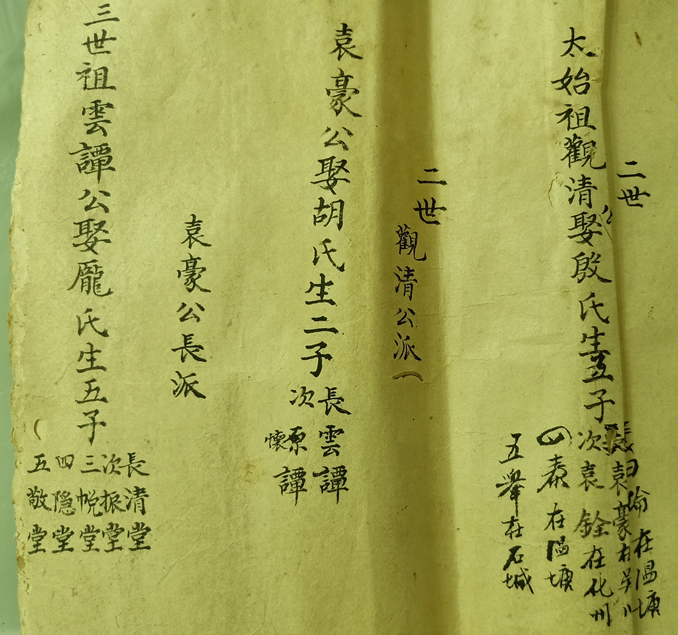 二世
太始祖觀清公娶殷氏生五子
袁豪在吳川
次袁銓在化州
四泰在塭塘
五舉在石城
二世
觀清公派
袁豪公娶胡氏生二子
長雲譚
次原譚
懷
袁豪公長派
三世祖雲譚公娶龐氏生五子
長清堂
次振堂
三悅堂
四隐堂
五敬堂